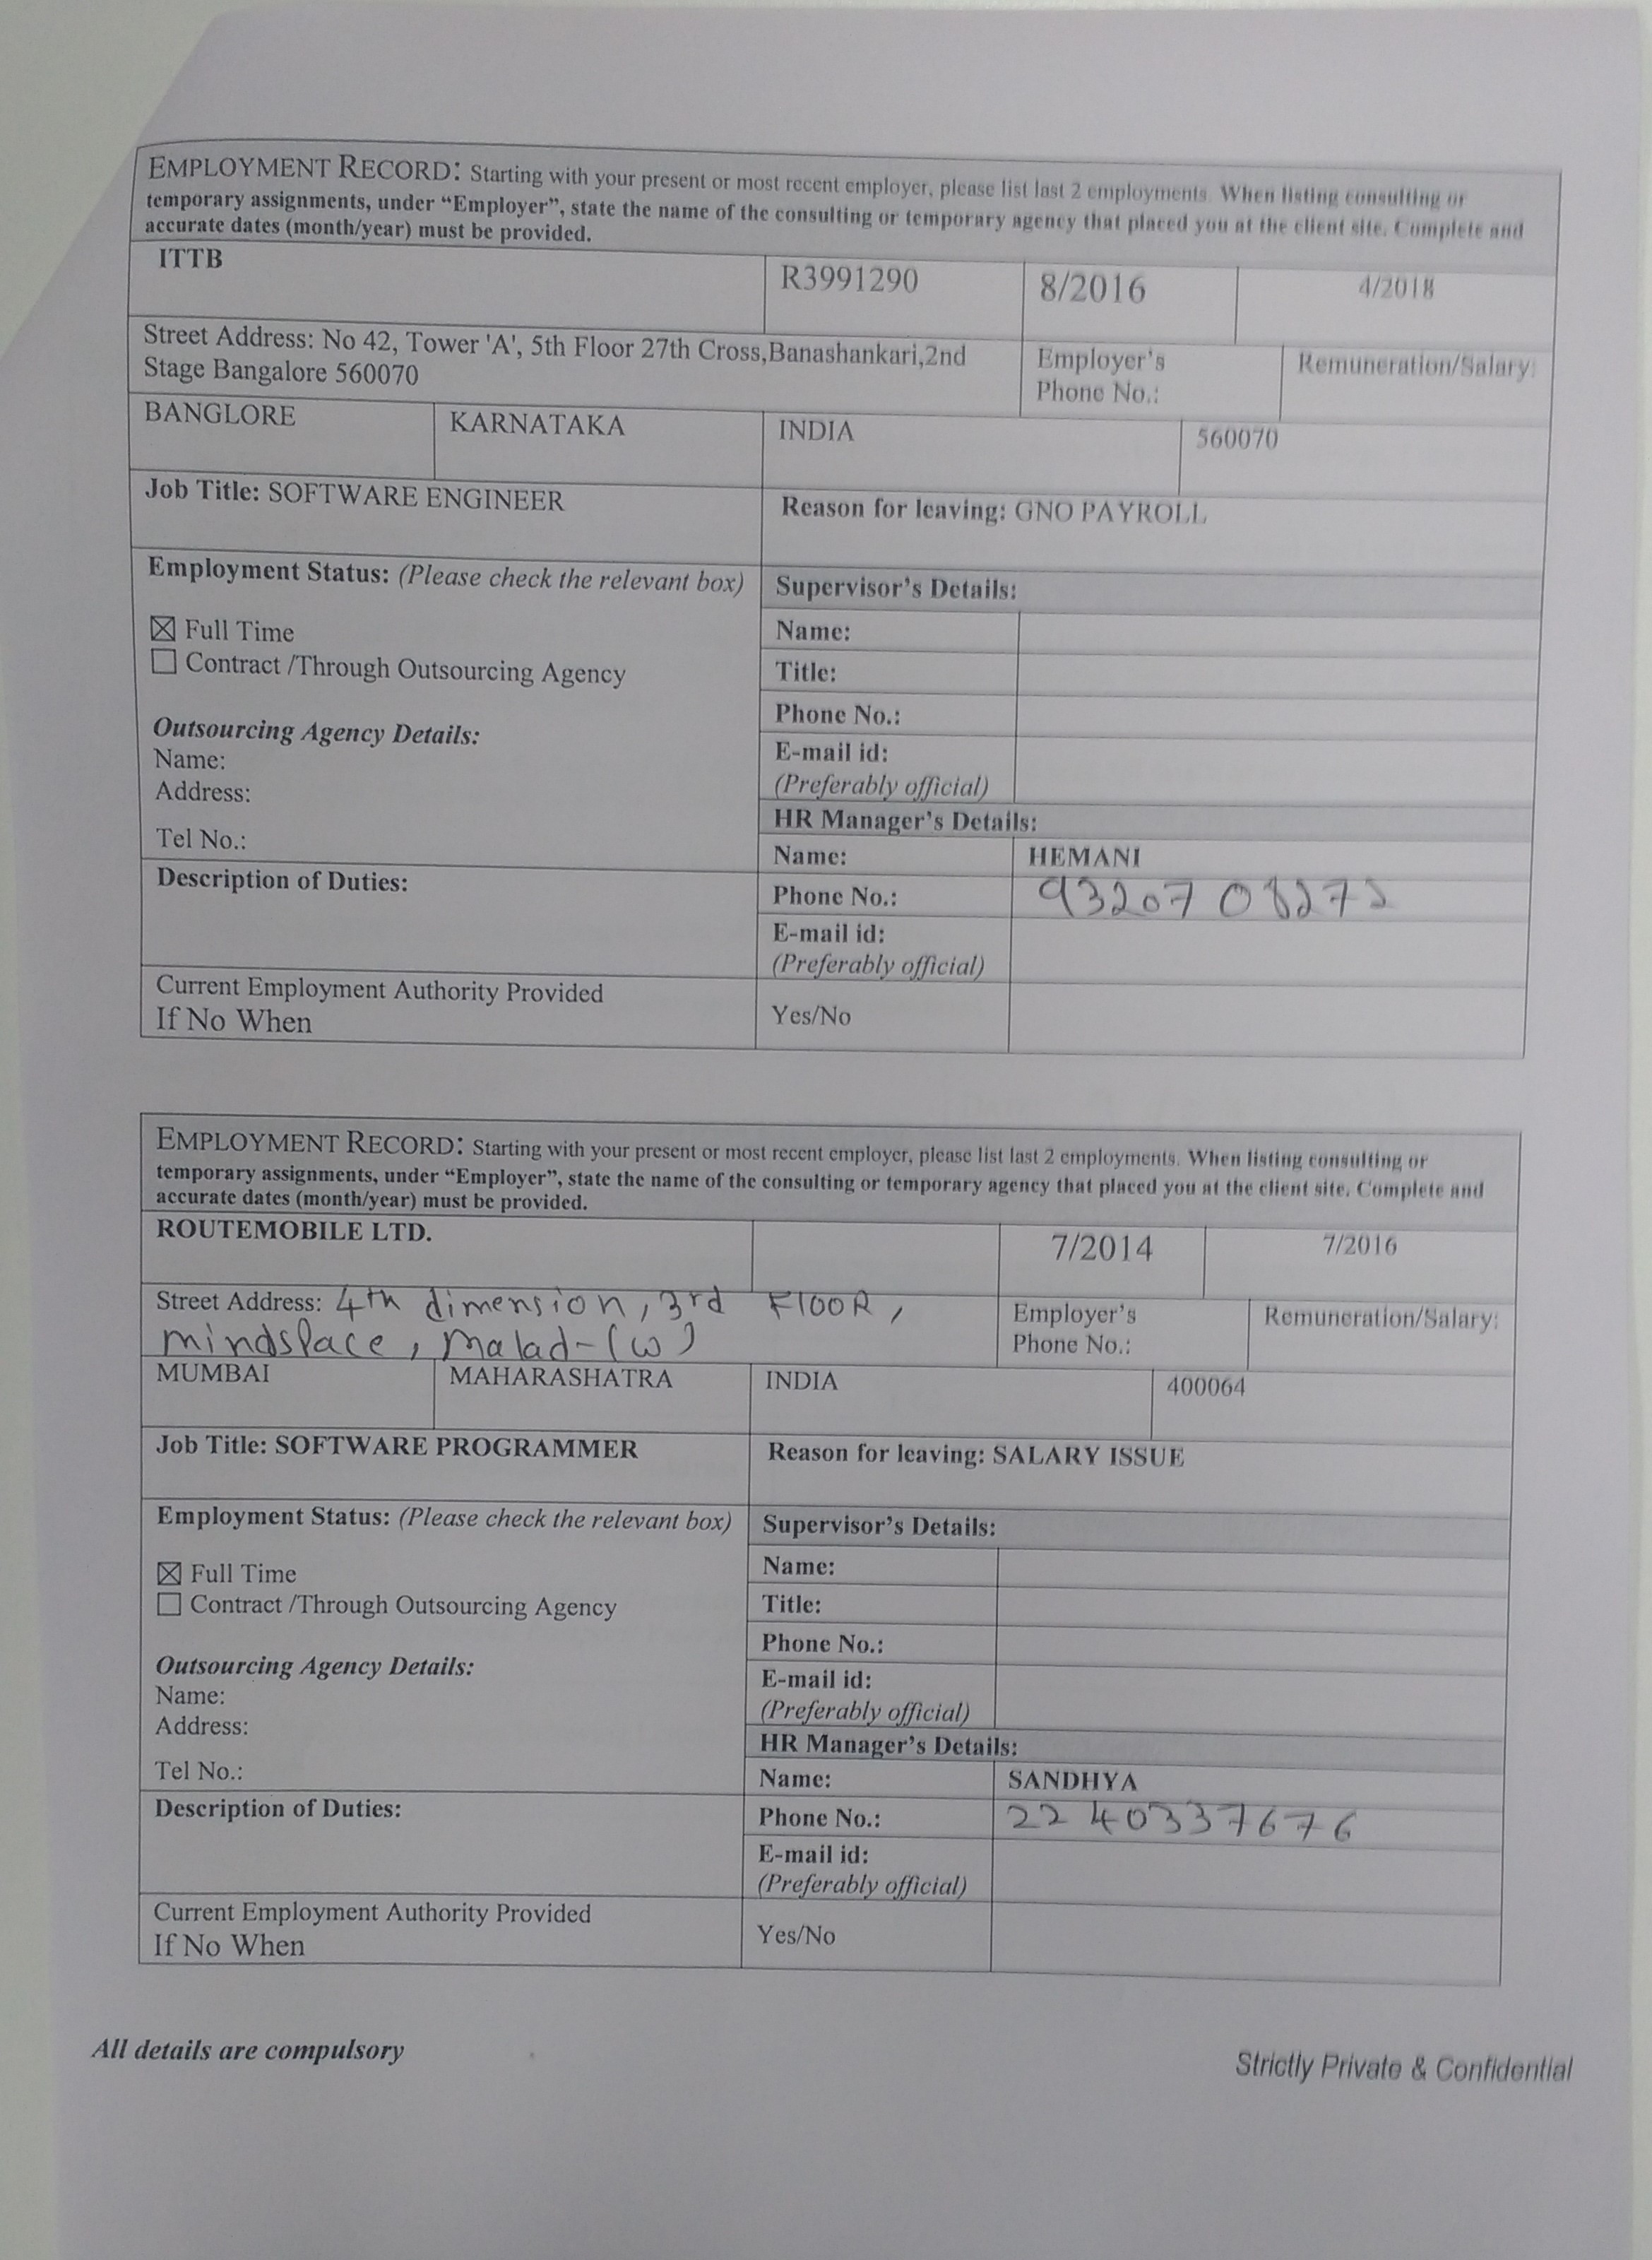 EMPLOYMENT RECORD: Starting with your present or most recent employer, please list last 2 employments. When listing consulting or
temporary assignments, under “Employer”, state the name of the consulting or temporary agency that placed you at the client site. Complete and
accurate dates (month/year) must be provided.
ITTB R3991290 8/2016 4/2018
Street Address: No 42, Tower 'A', 5th Floor 27th Cross,Banashankari,2nd
Stage Bangalore 560070
Employer's
Phone No.:
Remuneration/Salary:
BANGLORE KARNATAKA INDIA 560070
Job Title: SOFTWARE ENGINEER
Reason for leaving: GNO PAYROLL
Employment Status: (Please check the relevant box)
☒ Full Time
☐ Contract /Through Outsourcing Agency
Outsourcing Agency Details:
Name:
Address:
Tel No.:
Supervisor's Details:
Name:
Title:
Phone No.:
E-mail id:
(Preferably official)
HR Manager's Details:
Name: HEMANI
Description of Duties:
Phone No.: 93207 08272
E-mail id:
(Preferably official)
Current Employment Authority Provided
If No When
Yes/No
EMPLOYMENT RECORD: Starting with your present or most recent employer, please list last 2 employments. When listing consulting or
temporary assignments, under “Employer”, state the name of the consulting or temporary agency that placed you at the client site. Complete and
accurate dates (month/year) must be provided.
ROUTEMOBILE LTD. 7/2014 7/2016
Street Address: 4th dimension, 3rd FlOOR,
mindspace, Malad-(w)
Employer's
Phone No.:
Remuneration/Salary:
MUMBAI MAHARASHATRA INDIA 400064
Job Title: SOFTWARE PROGRAMMER
Reason for leaving: SALARY ISSUE
Employment Status: (Please check the relevant box)
☒ Full Time
☐ Contract /Through Outsourcing Agency
Outsourcing Agency Details:
Name:
Address:
Tel No.:
Supervisor's Details:
Name:
Title:
Phone No.:
E-mail id:
(Preferably official)
HR Manager's Details:
Name: SANDHYA
Description of Duties:
Phone No.: 22 40337676
E-mail id:
(Preferably official)
Current Employment Authority Provided
If No When
Yes/No
All details are compulsory
Strictly Private & Confidential